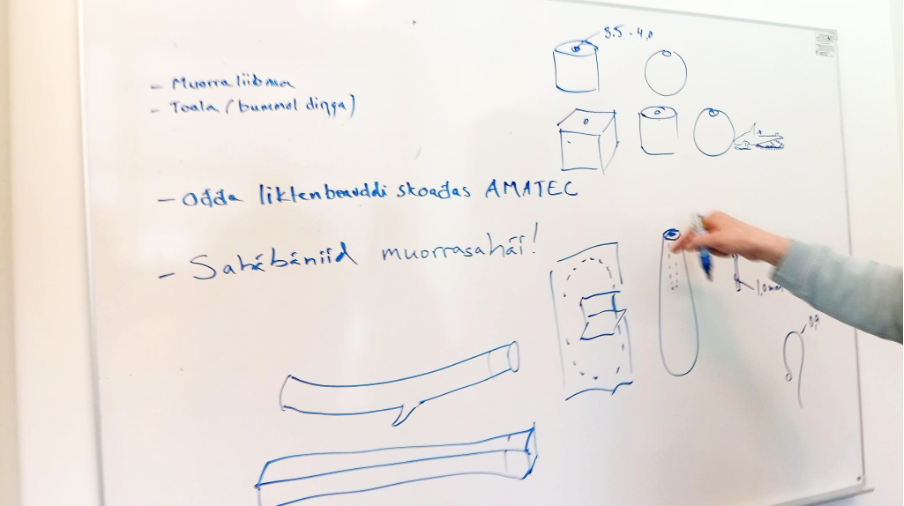 - Muorraliibma
- Toala (bummel diŋga)
- Ođđa liktenbeavddi skoađas AMATEC
- Sahábániid muorrasahái!
3.5 - 4.0